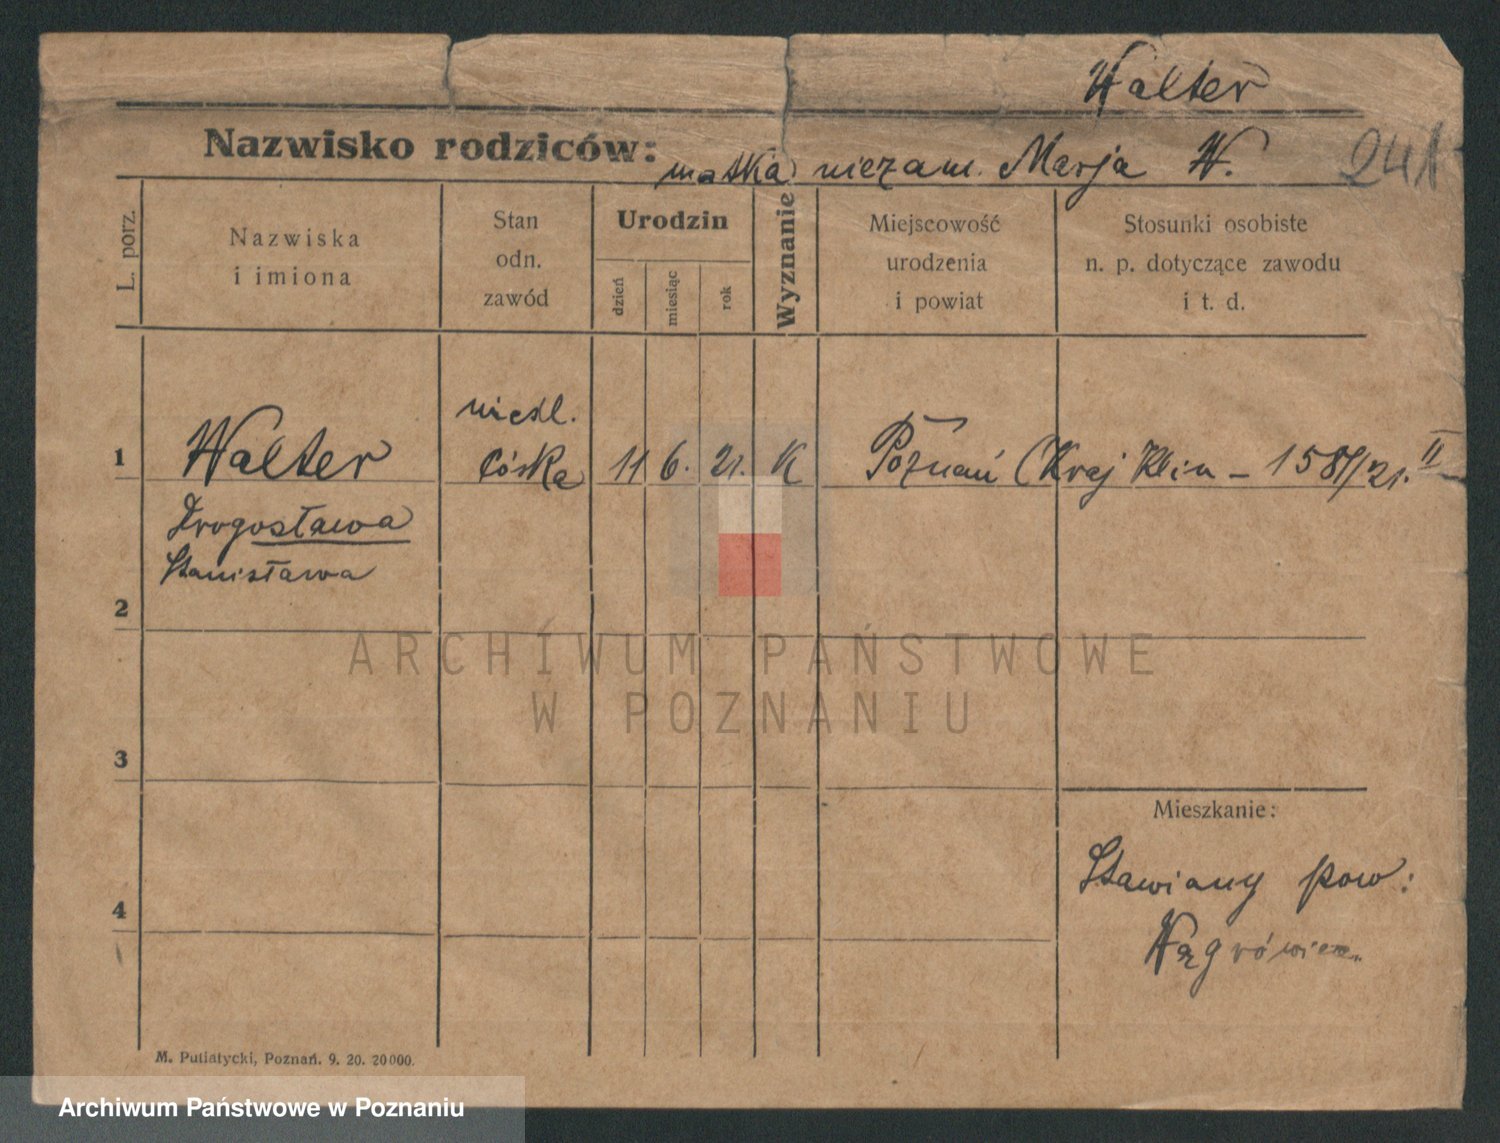 Walter
Nazwisko rodziców: matka niezam. Marja W.
241
L. porz.
Nazwiska
i imiona
Stan
odn.
zawód
Urodzin
dzień
miesiąc
rok
Wyznanie
Miejscowość
urodzenia
i powiat
Stosunki osobiste
n. p. dotyczące zawodu
i t. d.
1
Walter
Drogosława
Stanisława
nieśl.
córka
11 6. 21. K
Poznań (Kraj Klin – 1581/21. II
2
3
4
Mieszkanie:
Stawiany pow:
Wągrówiec.
M. Putiatycki, Poznań. 9. 20. 20000.
ARCHIWUM PAŃSTWOWE
W POZNANIU
Archiwum Państwowe w Poznaniu